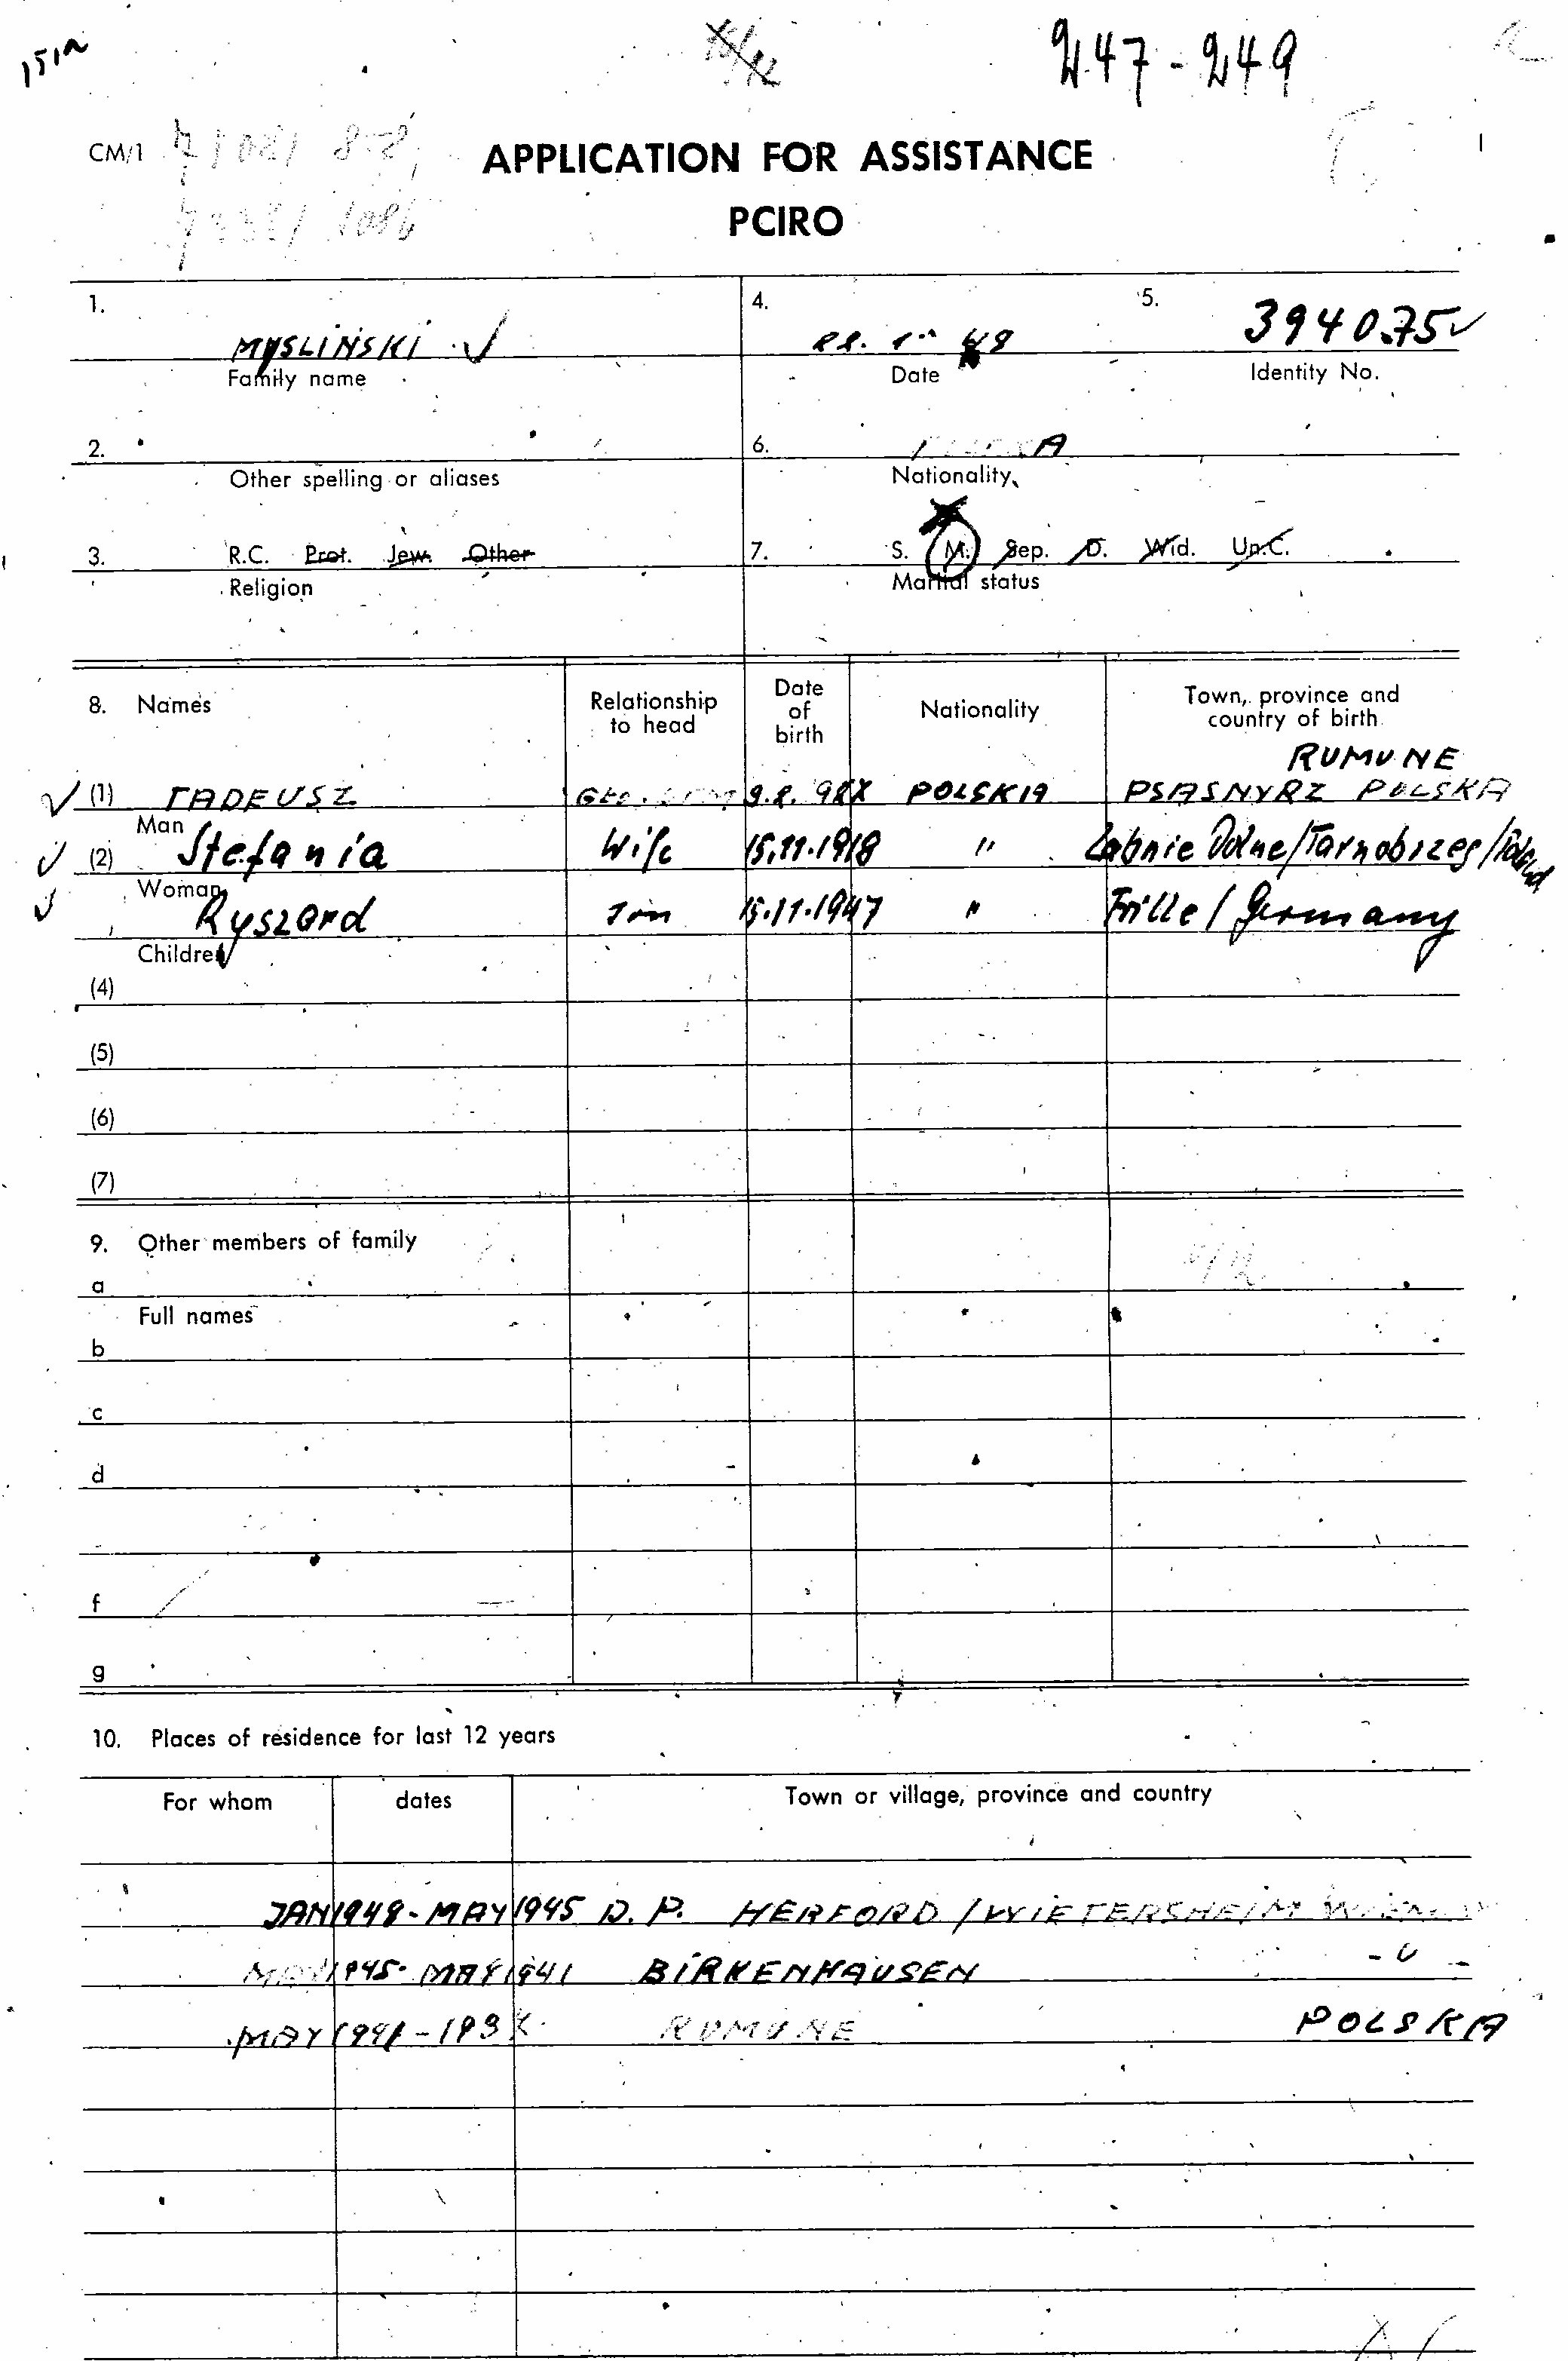 151a
247-249
CM/1
APPLICATION FOR ASSISTANCE
PCIRO
1.
4.
5.
MYSLIŃSKI
48
394075
Family name
Date
Identity No.
2.
6.
Other spelling or aliases
Nationality
3.
R.C. Prot. Jew. Other
7.
S. M. Sep. D. Wid. Un.C.
Religion
Martial status
8. Names
Relationship to head
Date of birth
Nationality
Town, province and country of birth
RUMUNE
(1) TADEUSZ POLSKIA PSASNYRZ POLSKA
Man
(2) Stefania Wife 15.11.1918 " Dolne/Tarnobrzeg/Poland
Woman
Ryszard Son 15.11.1947 " Frille / Germany
Children
(4)
(5)
(6)
(7)
9. Other members of family
a
Full names
b
c
d
f
g
10. Places of residence for last 12 years
For whom
dates
Town or village, province and country
JAN 1948 - MAY 1945 D.P. HERFORD / WIETERSHEIM
MAY 1945 - MAY 1941 BIRKENHAUSEN
MAY RUMUNE POLSKA